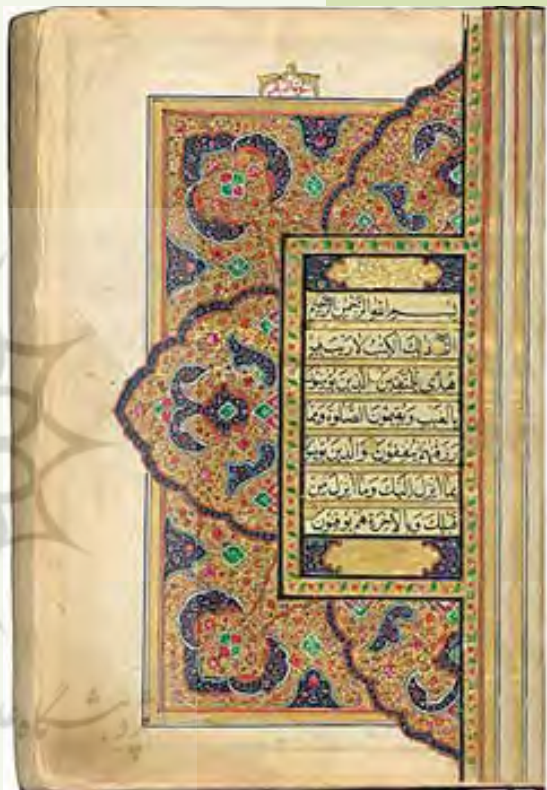 بسم الله الرحمن الرحیم
الم ذلك الكتب لا ريب فيه
هدى للمتقين الذين يؤمنون
بالغيب ويقيمون الصلوة ومما
رزقنهم ينفقون والذين يؤمنون
بما انزل اليك وما انزل من
قبلك وبالاخرة هم يوقنون